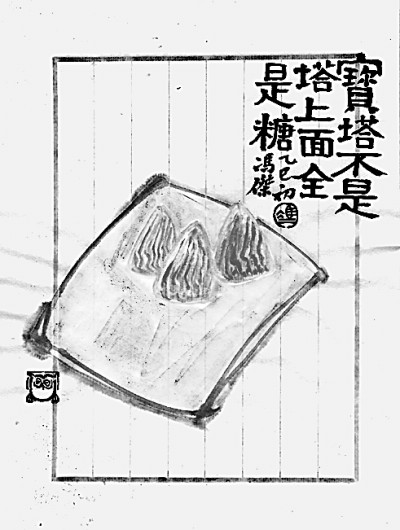 寶塔不是
塔上面全
是糖
乙巳初
馮傑